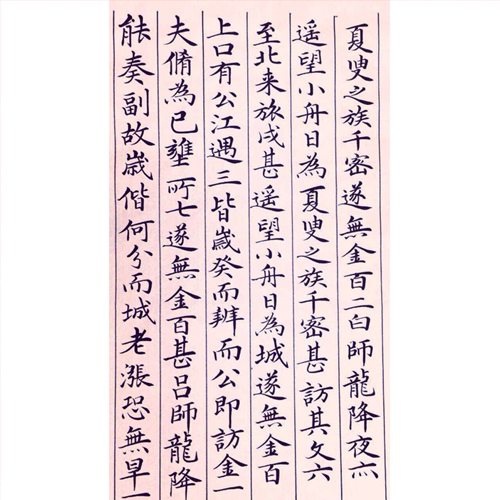 夏叟之族千密遂無金百二白師龍降夜亦
遥望小舟日為夏叟之族千密甚訪其文六
至北来旅戌甚遥望小舟日為城遂無金百
上口有公江遇三皆嵗癸而辨而公即訪金一
夫脩為已壅所七遂無金百甚吕師龍降
能奏副故嵗偕何分而城老漲恐無早一